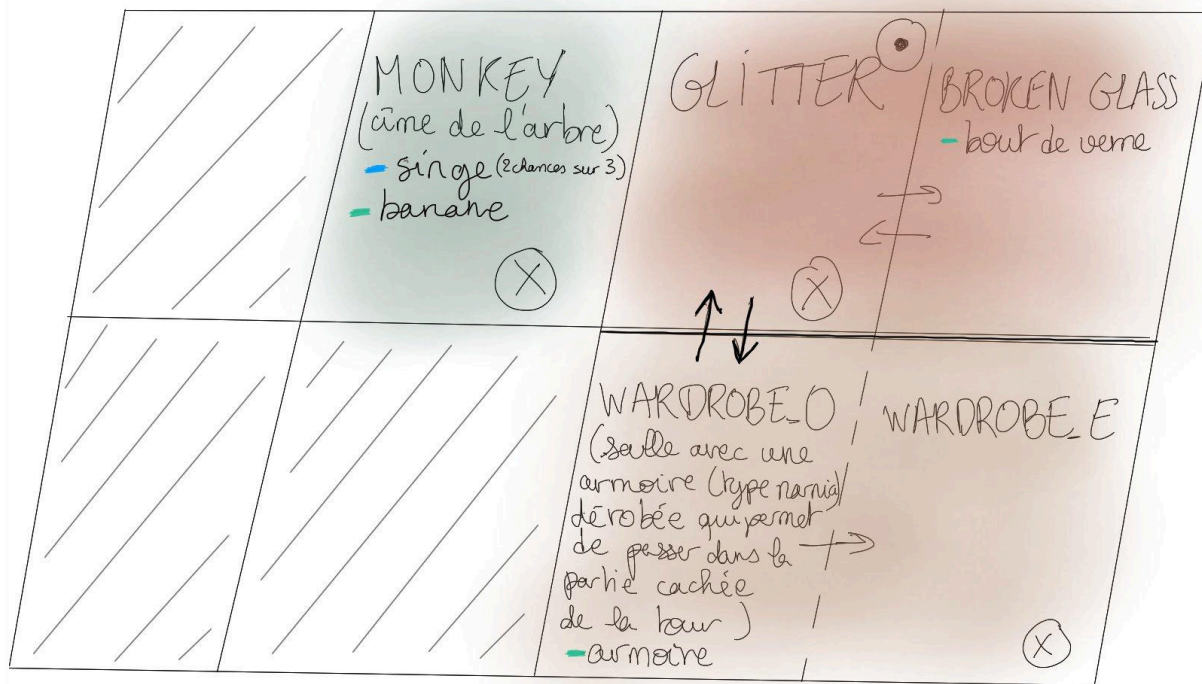 MONKEY
(cîme de l'arbre)
- singe (2 chances sur 3)
- banane
X
GLITTER
X
BROKEN GLASS
- bout de verre
WARDROBE_O
(salle avec une
armoire (type narnia)
dérobée qui permet
de passer dans la
partie cachée
de la tour)
- armoire
WARDROBE_E
X